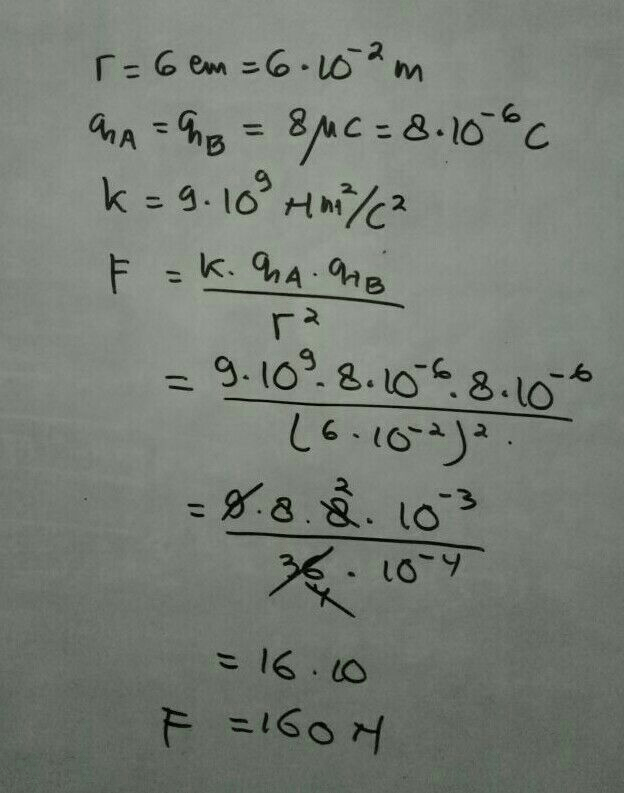 r = 6 cm = 6 · 10⁻² m
q_A = q_B = 8 μC = 8 · 10⁻⁶ C
k = 9 · 10⁹ Nm²/C²
F = k · q_A · q_B / r²
= 9 · 10⁹ · 8 · 10⁻⁶ · 8 · 10⁻⁶ / (6 · 10⁻²)²
= 9 · 8 · 8 2 · 10⁻³ / 36 4 · 10⁻⁴
= 16 · 10
F = 160 N